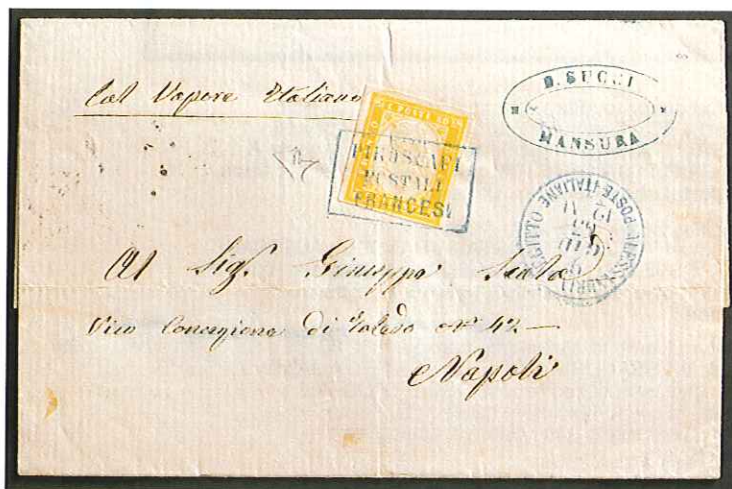 Col Vapore Italiano
D. SUCCI
MANSURA
PIROSCAFI
POSTALI
FRANCESI
POSTE ITALIANE
ALESSANDRIA
Al Sig. Giuseppe Scala
Vico Concezione di Toledo nº 42
Napoli